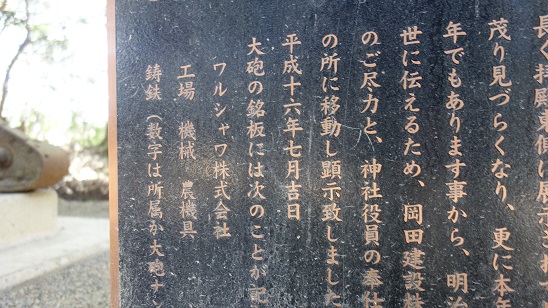 長く拝殿東側に展示され
茂り見づらくなり、更に本年
年でもあります事から、明治
世に伝えるため、岡田建設株
のご尽力と、神社役員の奉仕
の所に移動し顕示致しました
平成十六年七月吉日
大砲の銘板には次のことが記
ワルシャワ株式会社
工場 機械 農機具
鋳鉄(数字は所属か大砲ナ